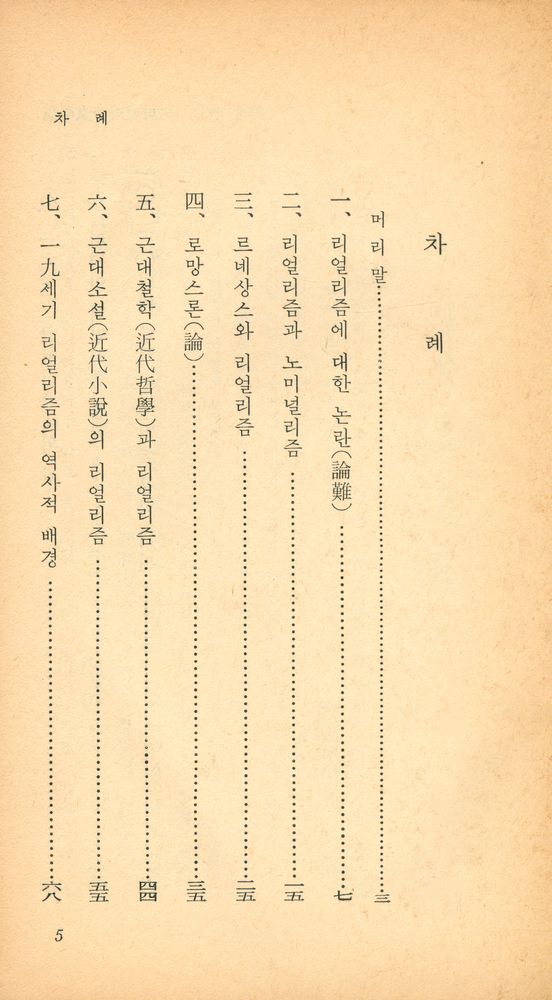 차 례
머리말 三
一、 리얼리즘에 대한 논란(論難) 七
二、 리얼리즘과 노미널리즘 一五
三、 르네상스와 리얼리즘 二五
四、 로망스론(論) 三五
五、 근대철학(近代哲學)과 리얼리즘 四四
六、 근대소설(近代小說)의 리얼리즘 五五
七、 一九세기 리얼리즘의 역사적 배경 六八
차 례
5